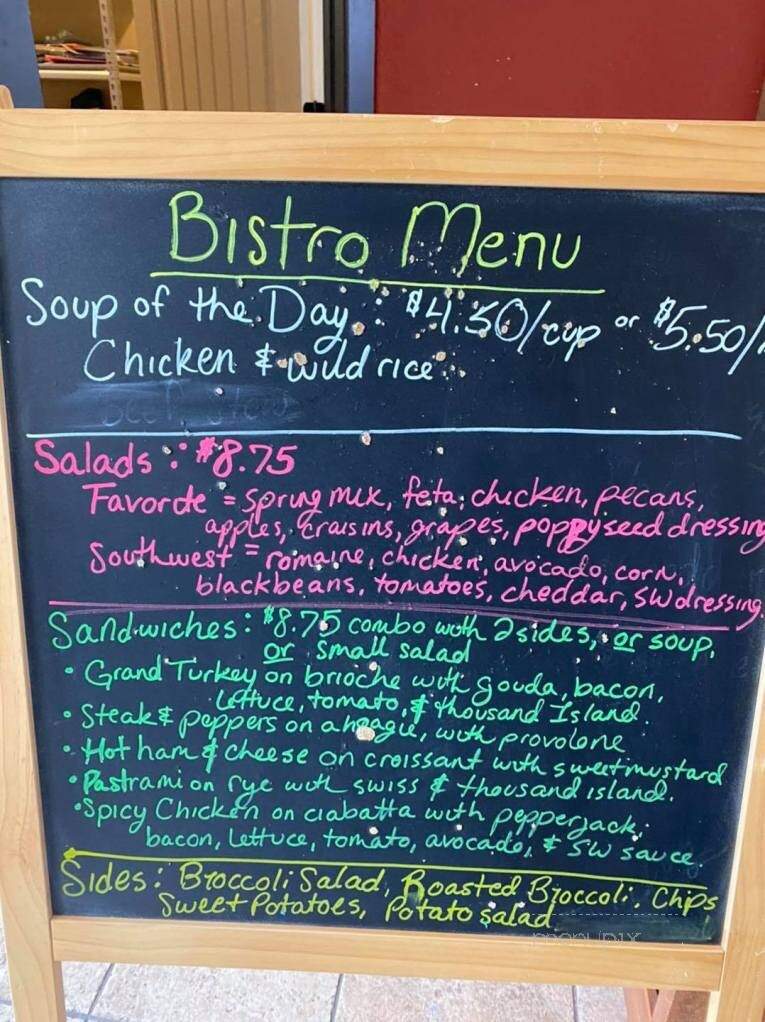 Bistro Menu
Soup of the Day: $4.50/cup or $5.50/
Chicken & wild rice
Salads: $8.75
Favorite = spring mix, feta, chicken, pecans,
apples, craisins, grapes, poppyseed dressing
Southwest = romaine, chicken, avocado, corn,
blackbeans, tomatoes, cheddar, SW dressing.
Sandwiches: $8.75 combo with 2 sides, or soup,
or small salad
• Grand Turkey on brioche with gouda, bacon,
lettuce, tomato, & thousand Island.
• Steak & peppers on a hoagie, with provolone
• Hot ham & cheese on croissant with sweet mustard
• Pastrami on rye with swiss & thousand island.
• Spicy Chicken on ciabatta with pepperjack,
bacon, lettuce, tomato, avocado, & SW sauce.
Sides: Broccoli Salad, Roasted Broccoli, Chips
Sweet Potatoes, Potato salad
menupix